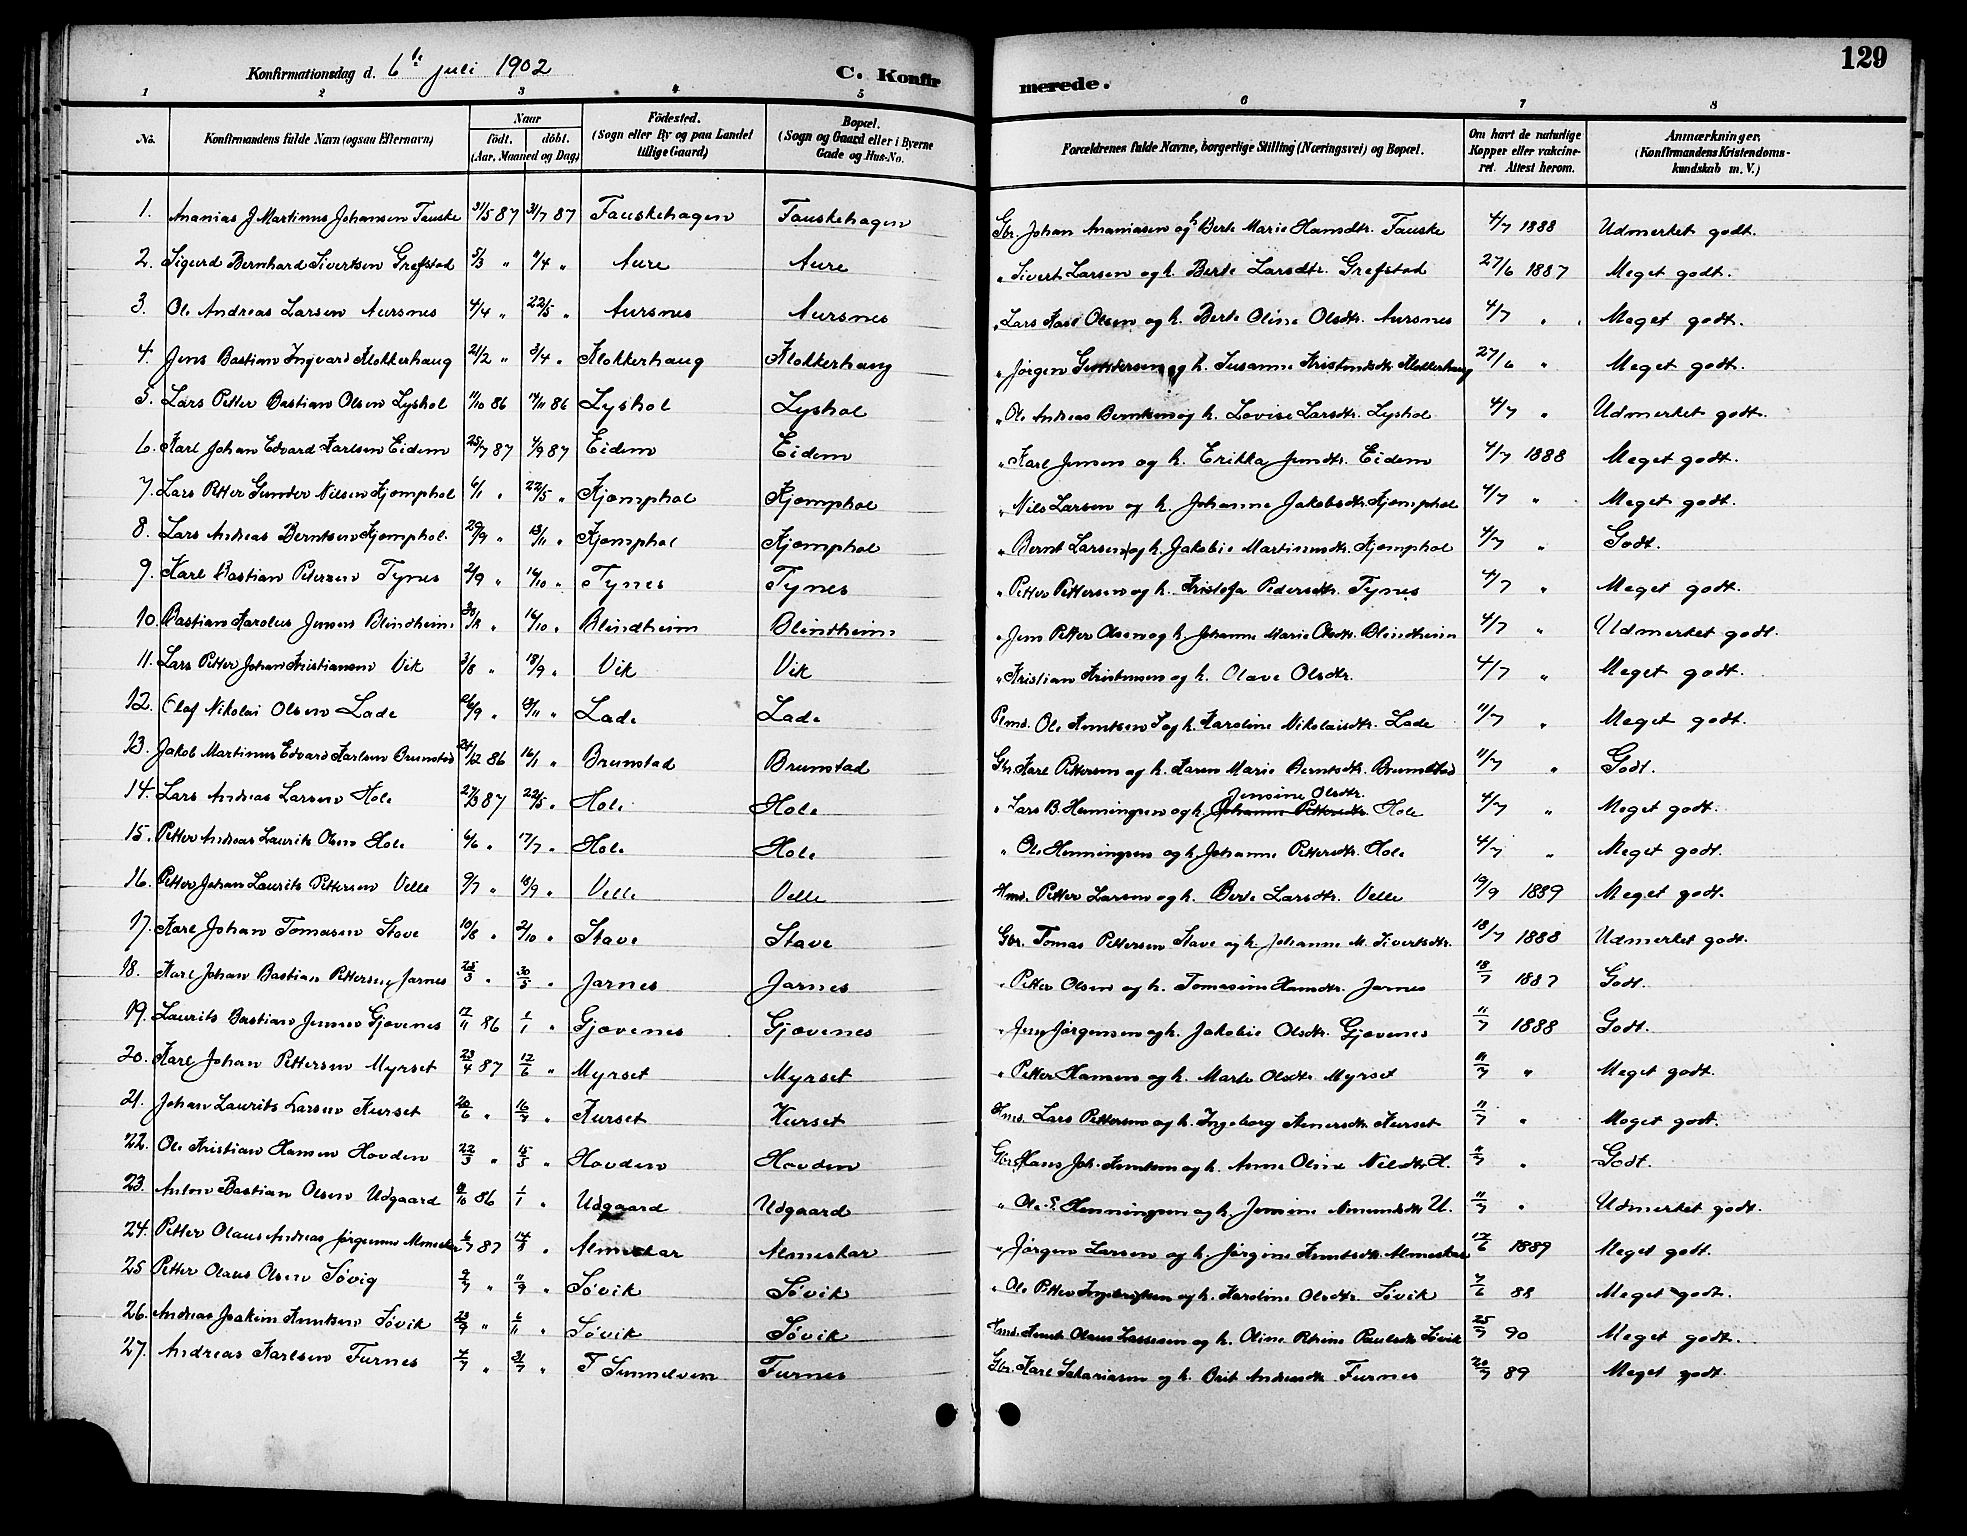 129
Konfirmationsdag d. 6te juli 1902
C. Konfirmerede.
1 2 3 4 5 6 7 8
No. Konfirmandens fulde Navn (ogsaa Efternavn) Naar födt. döbt. (Aar, Maaned og Dag) Födested. (Sogn eller By og paa Landet tillige Gaard) Bopæl. (Sogn og Gaard eller i Byerne Gade og Hus-No. Forældrenes fulde Navne, borgerlige Stilling (Næringsvei) og Bopæl. Om havt de naturlige Kopper eller vakcineret. Attest herom. Anmærkninger. (Konfirmandens Kristendomskundskab m. V.)
1. Ananias J Martinus Johansen Fauske 31/5 87 31/7 87 Fauskehagen Fauskehagen Gbr. Johan Ananiasen og h. Berte Marie Hansdtr. Fauske 4/7 1888 Udmerket godt.
2. Sigurd Bernhard Sivertsen Grefstad 5/3 " /4 " Aure Aure " Sivert Larsen og h. Berte Larsdtr. Grefstad 27/6 1887 Meget godt.
3. Ole Andreas Larsen Aursnes 4/4 " 22/5 " Aursnes Aursnes " Lars Karl Olsen og h. Berte Oline Olsdtr. Aursnes 4/7 " Meget godt.
4. Jens Bastian Ingvard Klokkerhaug 21/2 " 3/4 " Klokkerhaug Klokkerhaug " Jørgen og h. Susanne Klokkerhaug 27/6 " Meget godt.
5. Lars Petter Bastian Olsen Lyshol 11/10 86 14/11 86 Lyshol Lyshol " Ole Andreas Berntsen og h. Lovise Larsdtr. Lyshol 4/7 " Udmerket godt.
6. Karl Johan Edvard Karlsen Eidem 25/7 87 4/9 87 Eidem Eidem " Karl Jensen og h. Erikka Jensdtr. Eidem 4/7 1888 Meget godt.
7. Lars Petter Gunder Nilsen Kjemphol 6/1 " 22/5 " Kjemphol Kjemphol " Nils Larsen og h. Johanne Jakobsdtr. Kjemphol 4/7 " Meget godt.
8. Lars Andreas Berntsen Kjemphol. 29/9 " 13/11 " Kjemphol Kjemphol " Bernt Larsen og h. Jakobie Martinusdtr. Kjemphol 4/7 " Godt.
9. Karl Bastian Petersen Tynes 2/9 " 16/10 " Tynes Tynes " Petter Pettersen og h. Kristofa Pedersdtr. Tynes 4/7 " Meget godt.
10. Bastian Karolus Jensen Blindheim " 16/10 " Blindheim Blindheim " Jens Petter Olsen og h. Johanne Marie Olsdtr. Blindheim 4/7 " Udmerket godt.
11. Lars Petter Johan Kristiansen Vik 3/8 " 18/9 " Vik Vik " Kristian Kristensen og h. Olave Olsdtr. 4/7 " Meget godt.
12. Olaf Nikolai Olsen Lade 26/9 " 13/11 " Lade Lade Plms. Ole Knutsen og h. Karoline Nikolaisdtr. Lade 11/7 " Meget godt.
13. Jakob Martinus Edvard Karlsen Brunstad 24/12 86 16/1 " Brunstad Brunstad Gbr. Karl Pettersen og h. Karen Marie Berntsdtr. Brunstad 11/7 " Godt.
14. Lars Andreas Larsen Hole 27/3 87 22/5 " Hole Hole " Lars B. Henningsen og h. Johanne Pettersdtr. Jensine Olsdtr. Hole 4/7 " Meget godt.
15. Petter Andreas Laurits Olsen Hole 6/6 " 17/7 " Hole Hole " Ole Henningsen og h. Johanne Pettersdtr. Hole 4/7 " Meget godt.
16. Petter Johan Laurits Pettersen Velle 9/7 " 18/9 " Velle Velle Hmd. Petter Larsen og h. Berte Larsdtr. Velle 19/9 1889 Meget godt.
17. Karl Johan Tomasen Stave 10/8 " 2/10 " Stave Stave Gbr. Tomas Pettersen Stave og h. Johanne M. Sivertsdtr. 18/7 1888 Udmerket godt.
18. Karl Johan Bastian Pettersen Jarnes 25/3 " 30/5 " Jarnes Jarnes " Petter Olsen og h. Tomasine Hansdtr. Jarnes 18/7 1887 Godt.
19. Laurits Bastian Jensen Gjævenes 17/11 86 1/1 " Gjævenes Gjævenes " Jens Jørgensen og h. Jakobie Olsdtr. Gjævenes 11/7 1888 Godt.
20. Karl Johan Pettersen Myrset 23/4 87 12/6 " Myrset Myrset " Petter Hansen og h. Marte Olsdtr. Myrset 11/7 " Meget godt.
21. Johan Laurits Larsen Kurset 20/6 " 10/7 " Kurset Kurset Hmd. Lars Pettersen og h. Ingeborg Kurset 11/7 " Meget godt.
22. Ole Kristian Hansen Hovden 22/3 " 15/5 " Hovden Hovden Gbr. Hans Joh. Knutsen og h. Anne Oline Nilsdtr. H. 11/7 " Godt.
23. Anton Bastian Olsen Udgaard /10 86 1/1 " Udgaard Udgaard " Ole E. Henningsen og h. Jensine Amundsdtr. U. 11/7 " Udmerket godt.
24. Petter Olaus Andreas Jørgensen Almeskar 6/7 87 14/8 " Almeskar Almeskar " Jørgen Larsen og h. Jørgine Knutsdtr. Almeskar 12/6 1889 Meget godt.
25 Petter Olaus Olsen Søvig 9/7 " 11/9 " Søvik Søvik " Ole Petter Ingebrigtsen og h. Karoline Olsdtr. Søvik 7/6 88 Meget godt.
26. Andreas Joakim Knutsen Søvik 23/9 " 6/11 " Søvik Søvik Hmd. Knut Olaus Lassesen og h. Oline Petrine Paulsdtr Søvik 25/7 90 Meget godt.
27. Andreas Karlsen Furnes 7/7 " 31/7 " I Sunnelven Furnes Gbr. Karl Sakariasen og h. Brit Andersdtr Furnes 20/7 89 Meget godt.